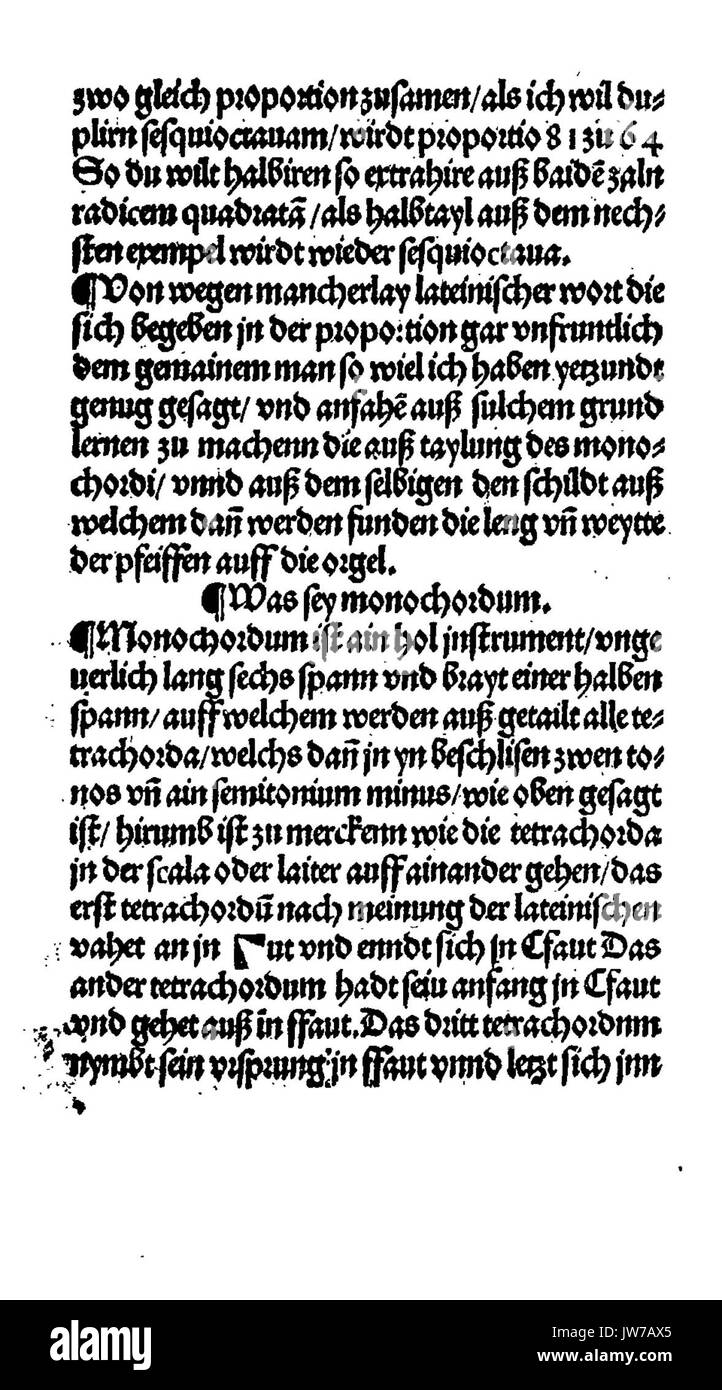 zwo gleich proportion zusamen/als ich wil du⸗
plirn sesquioctauam/wirdt proportio 81 zu 64
So du wilt halbiren so extrahire auß baidē zaln
radicem quadratā/als halbtayl auß dem nech⸗
sten exempel wirdt wieder sesquioctaua.
¶Von wegen mancherlay lateinischer wort die
sich begeben jn der proportion gar vnfruntlich
dem gemainem man so wiel ich haben yetzundt
genug gesagt/ vnd anfahē auß sulchem grund
lernen zu machenn die auß taylung des mono⸗
chordi/ vnnd auß dem selbigen den schildt auß
welchem dañ werden funden die leng vñ weytte
der pfeiffen auff die orgel.
¶Was sey monochordum.
¶Monochordum ist ain hol jnstrument/vnge
uerlich lang sechs spann vnd brayt einer halben
spann/auff welchem werden auß getailt alle te⸗
trachorda/welchs dañ jn yn beschlisen zwen to⸗
nos vñ ain semitonium minus/wie oben gesagt
ist/ hirumb ist zu merckenn wie die tetrachorda
jn der scala oder laiter auff ainander gehen/das
erst tetrachordū nach meinung der lateinischen
vahet an jn Γut vnd enndt sich jn Cfaut Das
ander tetrachordum hadt seiu anfang jn Cfaut
vnd gehet auß in ffaut. Das dritt tetrachordnm
nymbt sein vrsprung jn ffaut vnnd letzt sich jnn
alamy
Image ID: JW7AX5
www.alamy.com